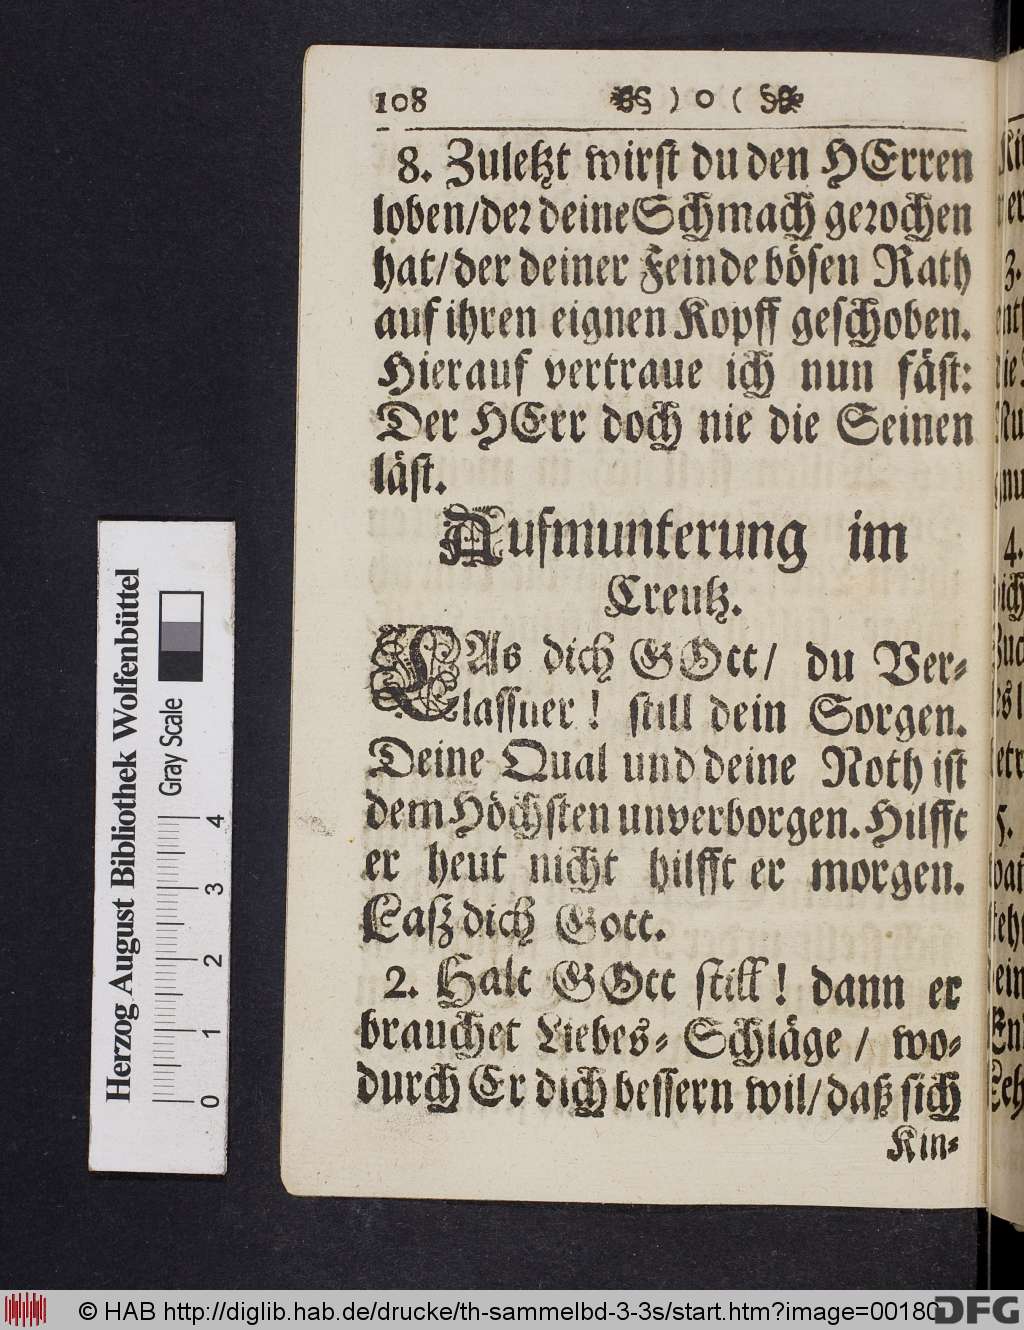 108 ) o (
8. Zuletzt wirst du den HErren
loben/der deine Schmach gerochen
hat/ der deiner Feinde bösen Rath
auf ihren eignen Kopff geschoben.
Hierauf vertraue ich nun fäst:
Der HErr doch nie die Seinen
läst.
Aufmunterung im
Creutz.
LAs dich GOtt/ du Ver-
lassner! still dein Sorgen.
Deine Qual und deine Noth ist
dem Höchsten unverborgen. Hilfft
er heut nicht hilfft er morgen.
Laß dich Gott.
2. Halt GOtt still! dann er
brauchet Liebes- Schläge / wo-
durch Er dich bessern wil/ daß sich
Kin-
Herzog August Bibliothek Wolfenbüttel
Gray Scale
0 1 2 3 4
© HAB http://diglib.hab.de/drucke/th-sammelbd-3-3s/start.htm?image=00180
DFG